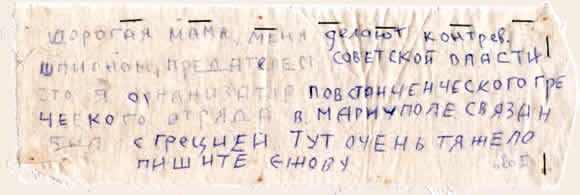 ДОРОГАЯ МАМА, МЕНЯ делают контрев.
шпионом, ПРЕДАТЕЛЕМ СОВЕТСКОЙ ВЛАСТИ
ЧТО Я ОРГАНИЗАТОР ПОВСТАНЧЕНЧЕСКОГО ГРЕ
ЧЕСКОГО ОТРЯДА В МАРИУПОЛЕ СВЯЗАН
БЫЛ С ГРЕЦИЕЙ ТУТ ОЧЕНЬ ТЯЖЕЛО
ПИШИТЕ ЕЖОВУ